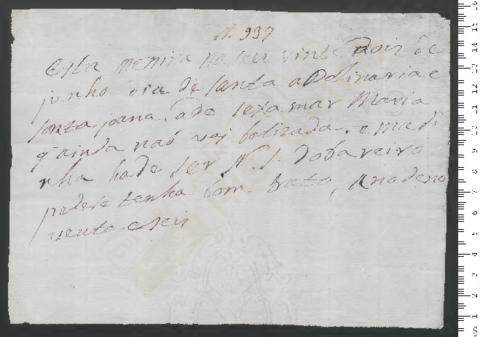 N. 937
Esta menina naseu vinte dois de
junho dia de santa apolinaria e
santa joana. ade sexamar Maria
q ainda naõ vaj batizada. e madi
nha hade ser N. S. do
pedese tenha bom trato, Anode no
venta e seis